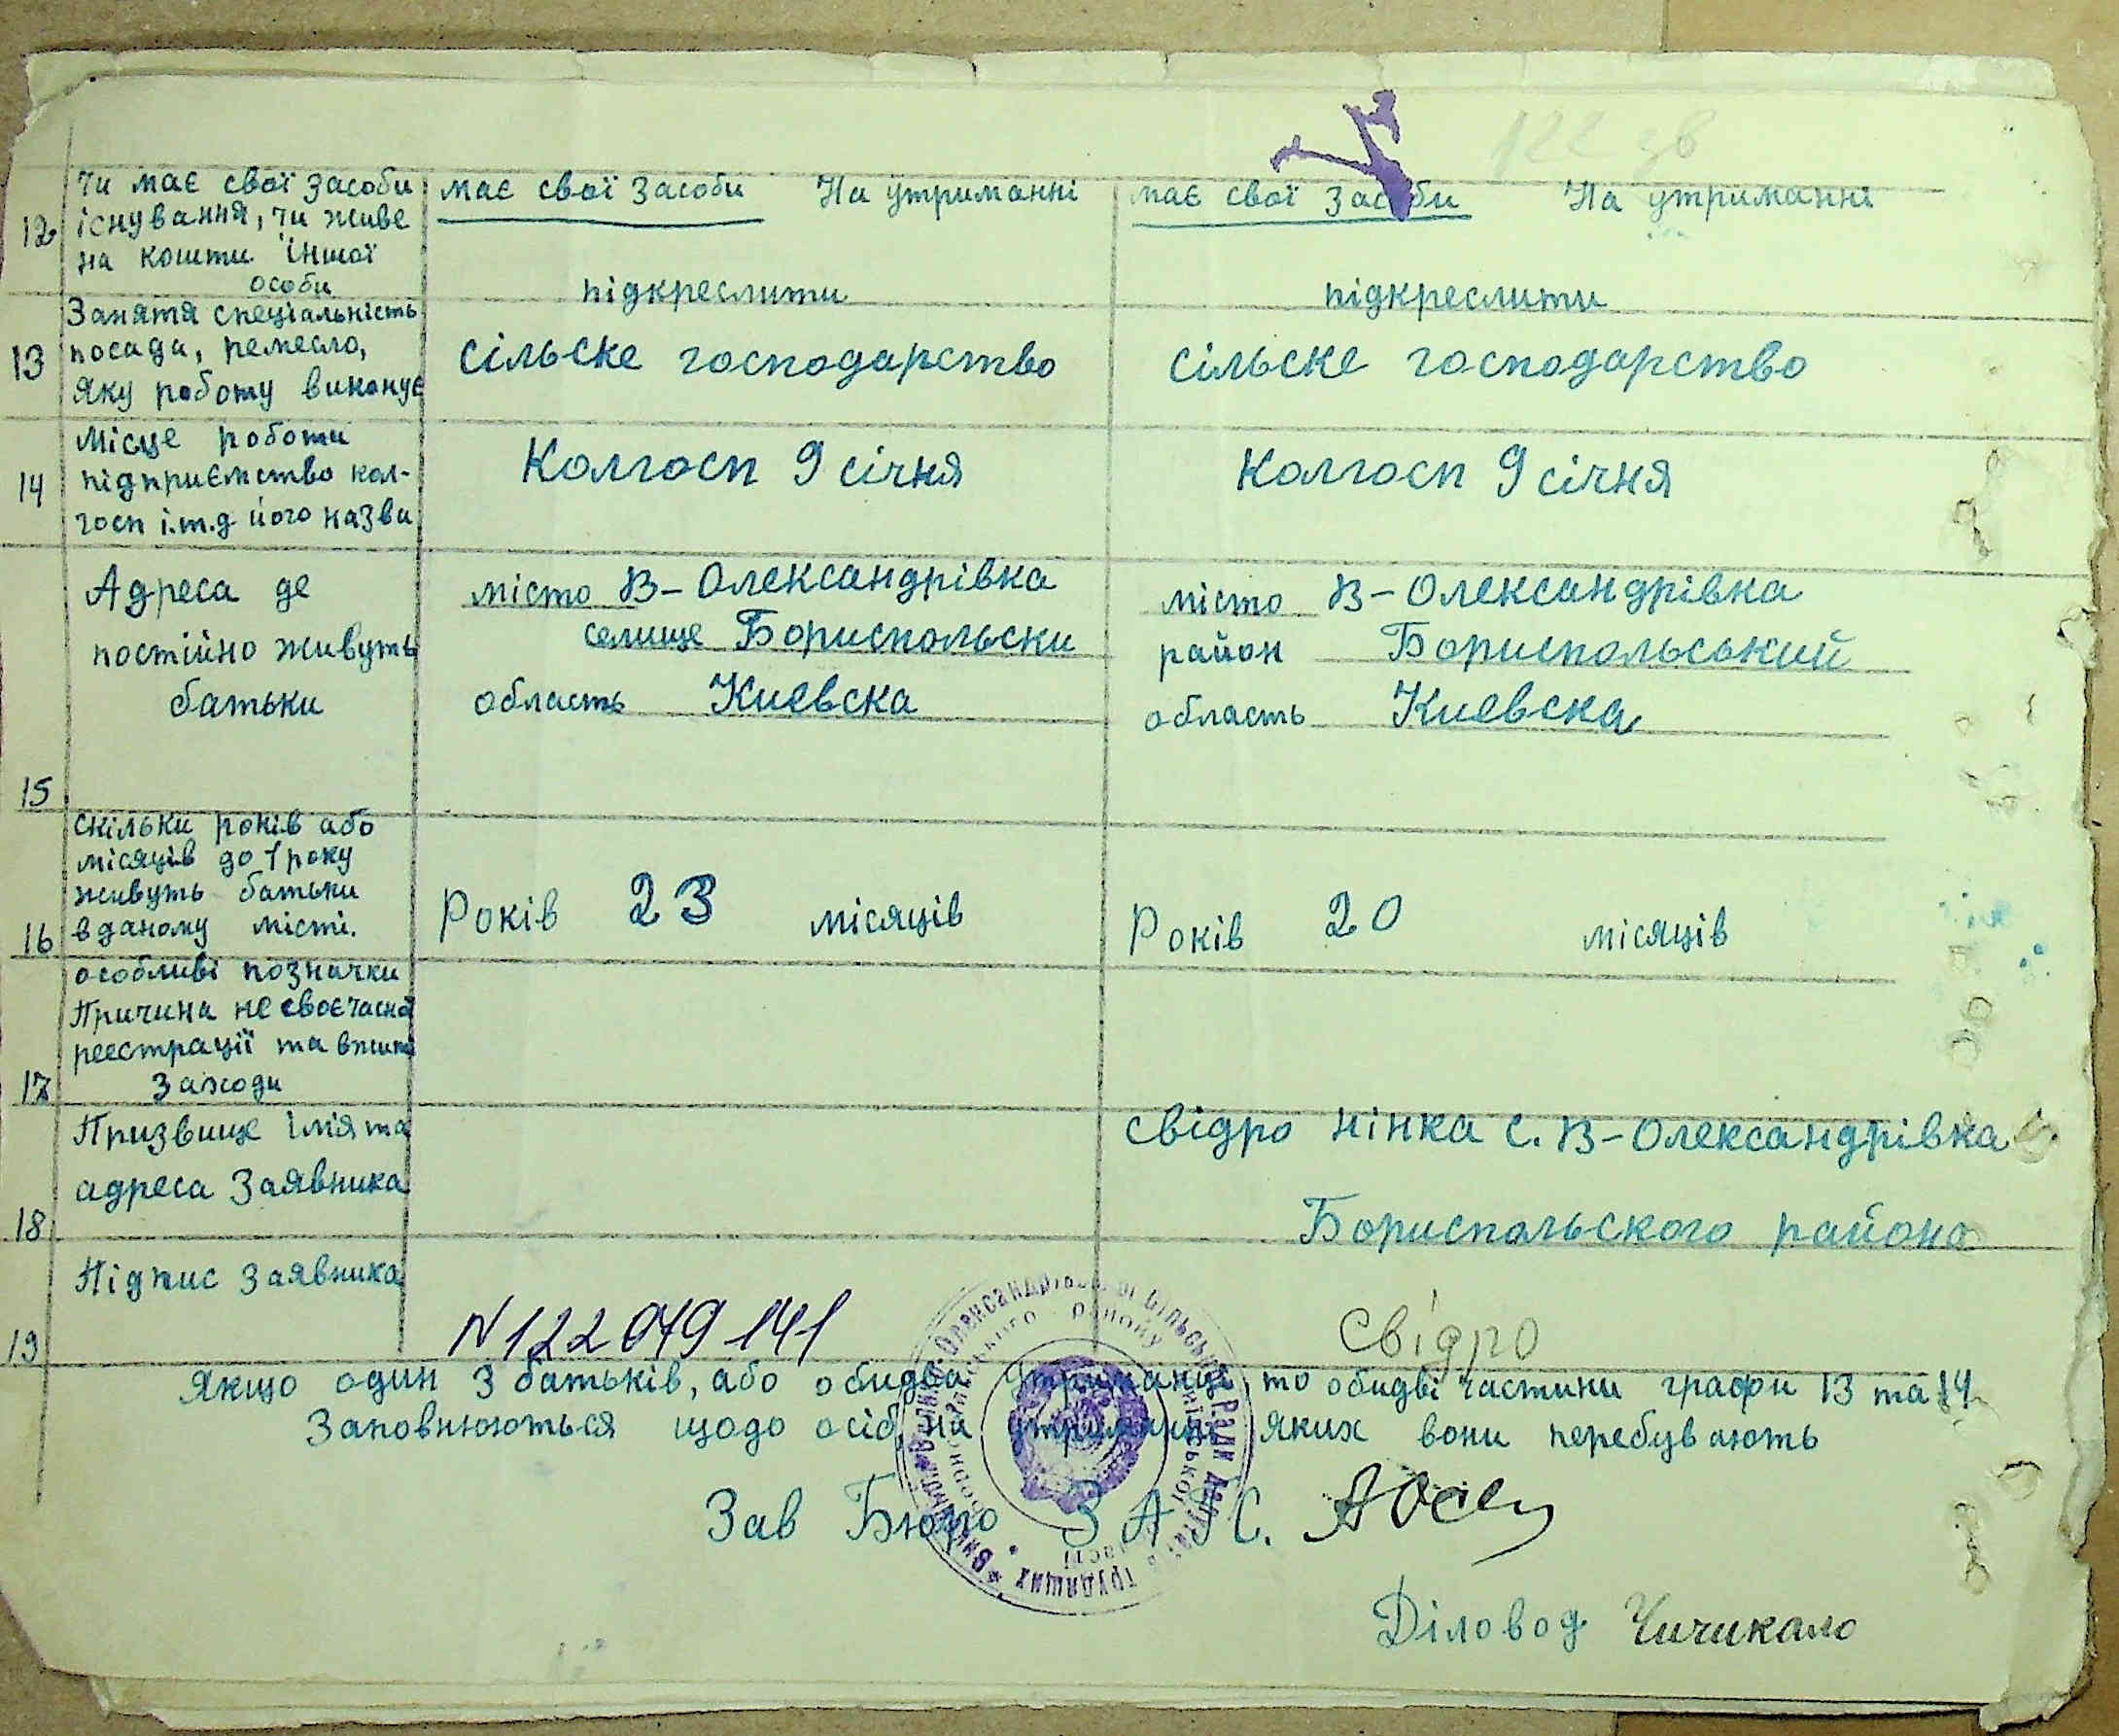 122 зв
12 Чи має свої засоби
існування, чи живе
на кошти іншої
особи
має свої засоби На утриманні
підкреслити
має свої засоби На утриманні
підкреслити
13 Занятя спеціальність
посада, ремесло,
яку роботу виконує
сільске господарство
сільске господарство
14 Місце роботи
підприємство кол-
госп і.т.д його назва
Колгосп 9 січня
Колгосп 9 січня
15 Адреса де
постійно живуть
батьки
місто В-Олександрівка
селище Бориспольски
область Киевска
місто В-Олександрівка
район Бориспольський
область Киевска
16 скільки років або
місяців до 1 року
живуть батьки
в даному місті.
Років 23 місяців
Років 20 місяців
17 особливі позначки
Причина не своєчасної
реестрації та вжиті
заходи
18 Призвище імія та
адреса Заявника
свідро нінка с. В-Олександрівка
Бориспольского района
19 Підпис Заявника
N 122 049 141
свідро
Якщо один з батьків, або обидва утриманці, то обидві частини графи 13 та 14
Заповнюються щодо осіб, на утриманні яких вони перебувають
Зав Бюро ЗАГС.
Діловод Чичикало